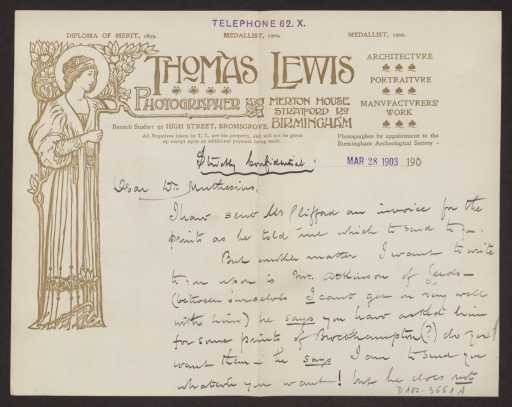 TELEPHONE 62. X.
DIPLOMA OF MERIT, 1899.
MEDALLIST, 1900.
MEDALLIST, 1902.
THOMAS LEWIS
PHOTOGRAPHER
MERTON HOUSE
STRATFORD RD
BIRMINGHAM
ARCHITECTVRE
PORTRAITVRE
MANVFACTVRERS'
WORK
Branch Studio: 92 HIGH STREET, BROMSGROVE.
All Negatives taken by T. L. are his property, and will not be given
up except upon an additional payment being made.
Photographer by appointment to the
Birmingham Archæological Society
Strictly Confidential.
MAR 28 1903 190
Dear Dr. Muthesius,
I have sent Mr Clifford an invoice for the
prints as he told me which to send to you.
But another matter I want to write
to you upon is Mr. Atkinson of Leeds—
(between ourselves I can't get on very well
with him) he says you have asked him
for some prints of Brockhampton (?) do you
want them — he says I am to send you
whatever you want! but he does not
D 102-3661 A